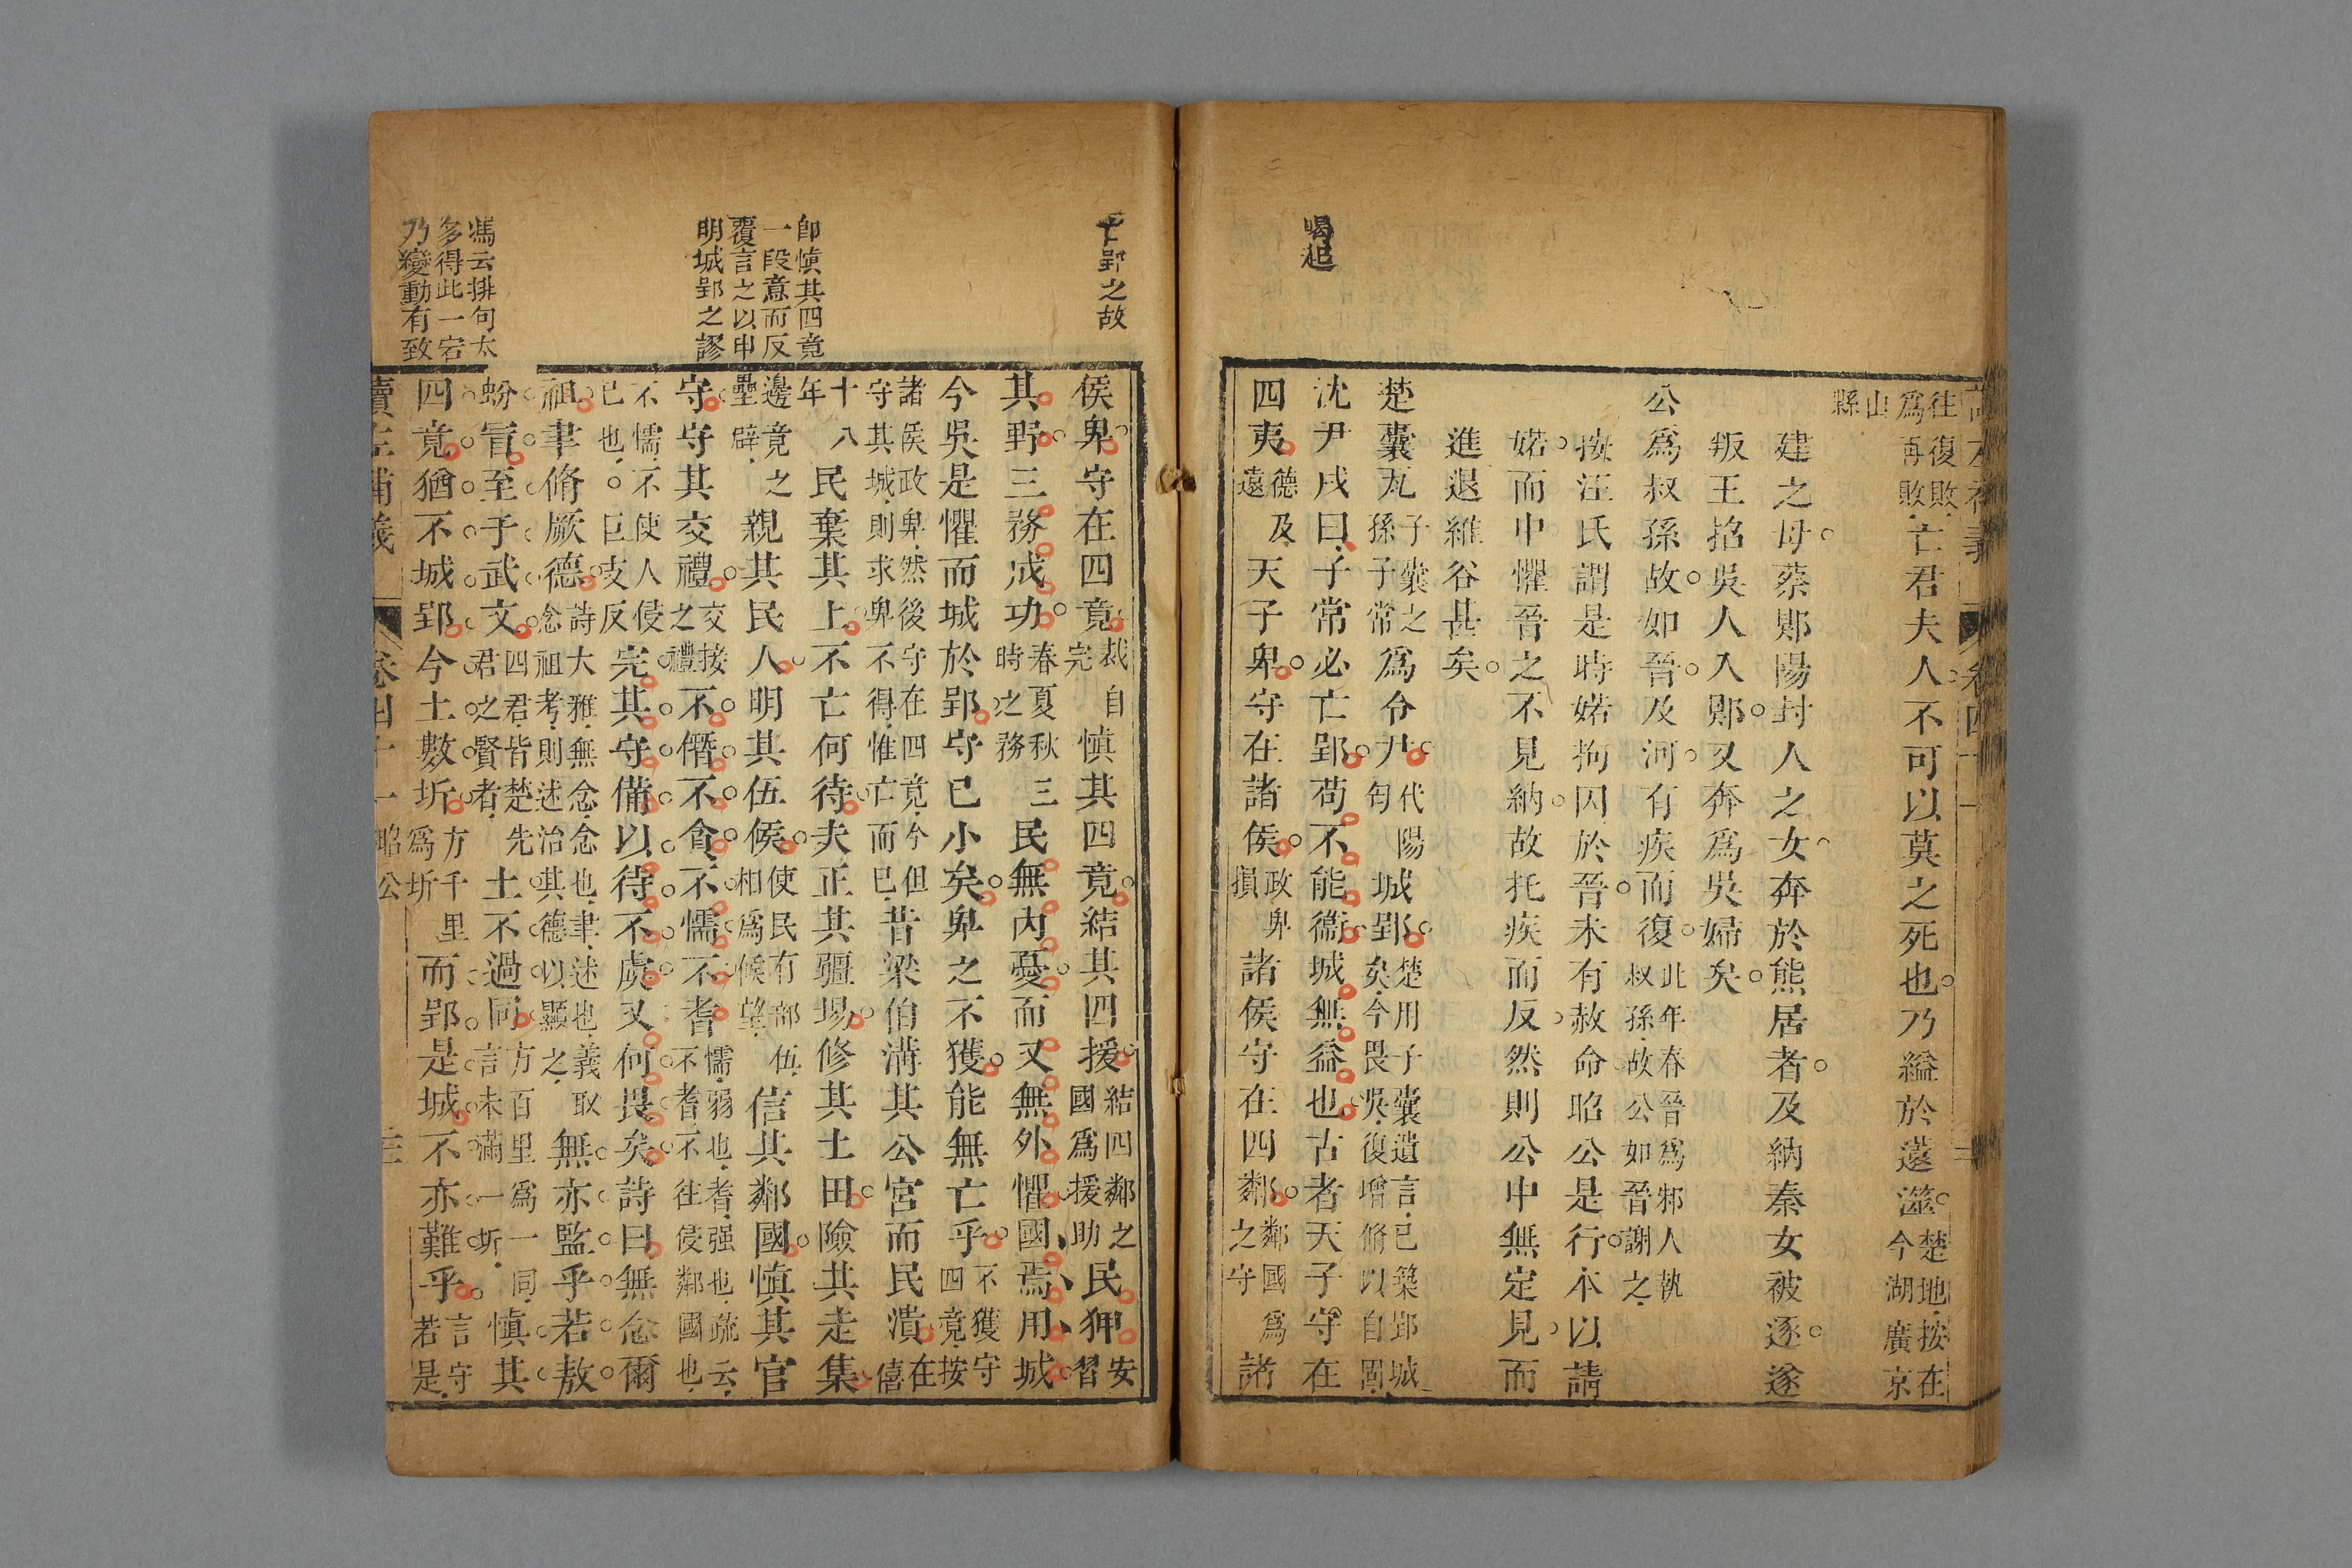 往復敗爲再敗亡君夫人不可以莫之死也乃縊於薳澨楚地按在今湖廣京
山縣
建之母蔡鄖陽封人之女奔於熊居者及納秦女被逐遂
叛王掐吳人入鄖又奔爲吳婦矣
公爲叔孫故如晉及河有疾而復此年春晉爲邾人執叔孫故公如晉謝之
按汪氏謂是時婼拘囚於晉未有赦命昭公是行本以請
婼而中懼晉之不見納故托疾而反然則公中無定見而
進退維谷甚矣
楚囊瓦子囊之孫子常爲令尹代陽匄城郢楚用子囊遺言已築郢城矣今畏吳復增脩以自固
喝起
沈尹戌曰子常必亡郢苟不能衞城無益也古者天子守在
四夷德及遠天子卑守在諸侯政卑損諸侯守在四鄰鄰國爲之守諸
亡郢之故
侯卑守在四竟裁自完慎其四竟結其四援結四鄰之國爲援助民狎安習
其野三務成功春夏秋三時之務民無內憂而又無外懼國焉用城
今吳是懼而城於郢守已小矣卑之不獲能無亡乎不獲守四竟按
諸侯政卑然後守在四竟今但守其城則求卑不得惟亡而已昔梁伯溝其公宮而民潰在僖
十八年民棄其上不亡何待夫正其疆場修其土田險其走集
卽慎其四竟
一段意而反
覆言之以申
明城郢之謬
邊竟之壘辟親其民人明其伍候使民有部伍相爲候望信其鄰國慎其官
守守其交禮交接之禮不僭不貪不懦不耆懦弱也耆强也疏云不耆不往侵鄰國也
不懦不使人侵已也○巨支反完其守備以待不虞又何畏矣詩曰無念爾
祖聿脩厥德詩大雅無念念也聿述也義取念祖考則述治其德以顯之無亦監乎若敖
馮云排句太
多得此一宕
乃變動有致
蚡冒至于武文四君皆楚先君之賢者土不過同方百里爲一同言未滿一圻慎其
四竟猶不城郢今土數圻方千里爲圻而郢是城不亦難乎言守若是
讀左補義 卷四十一 昭公